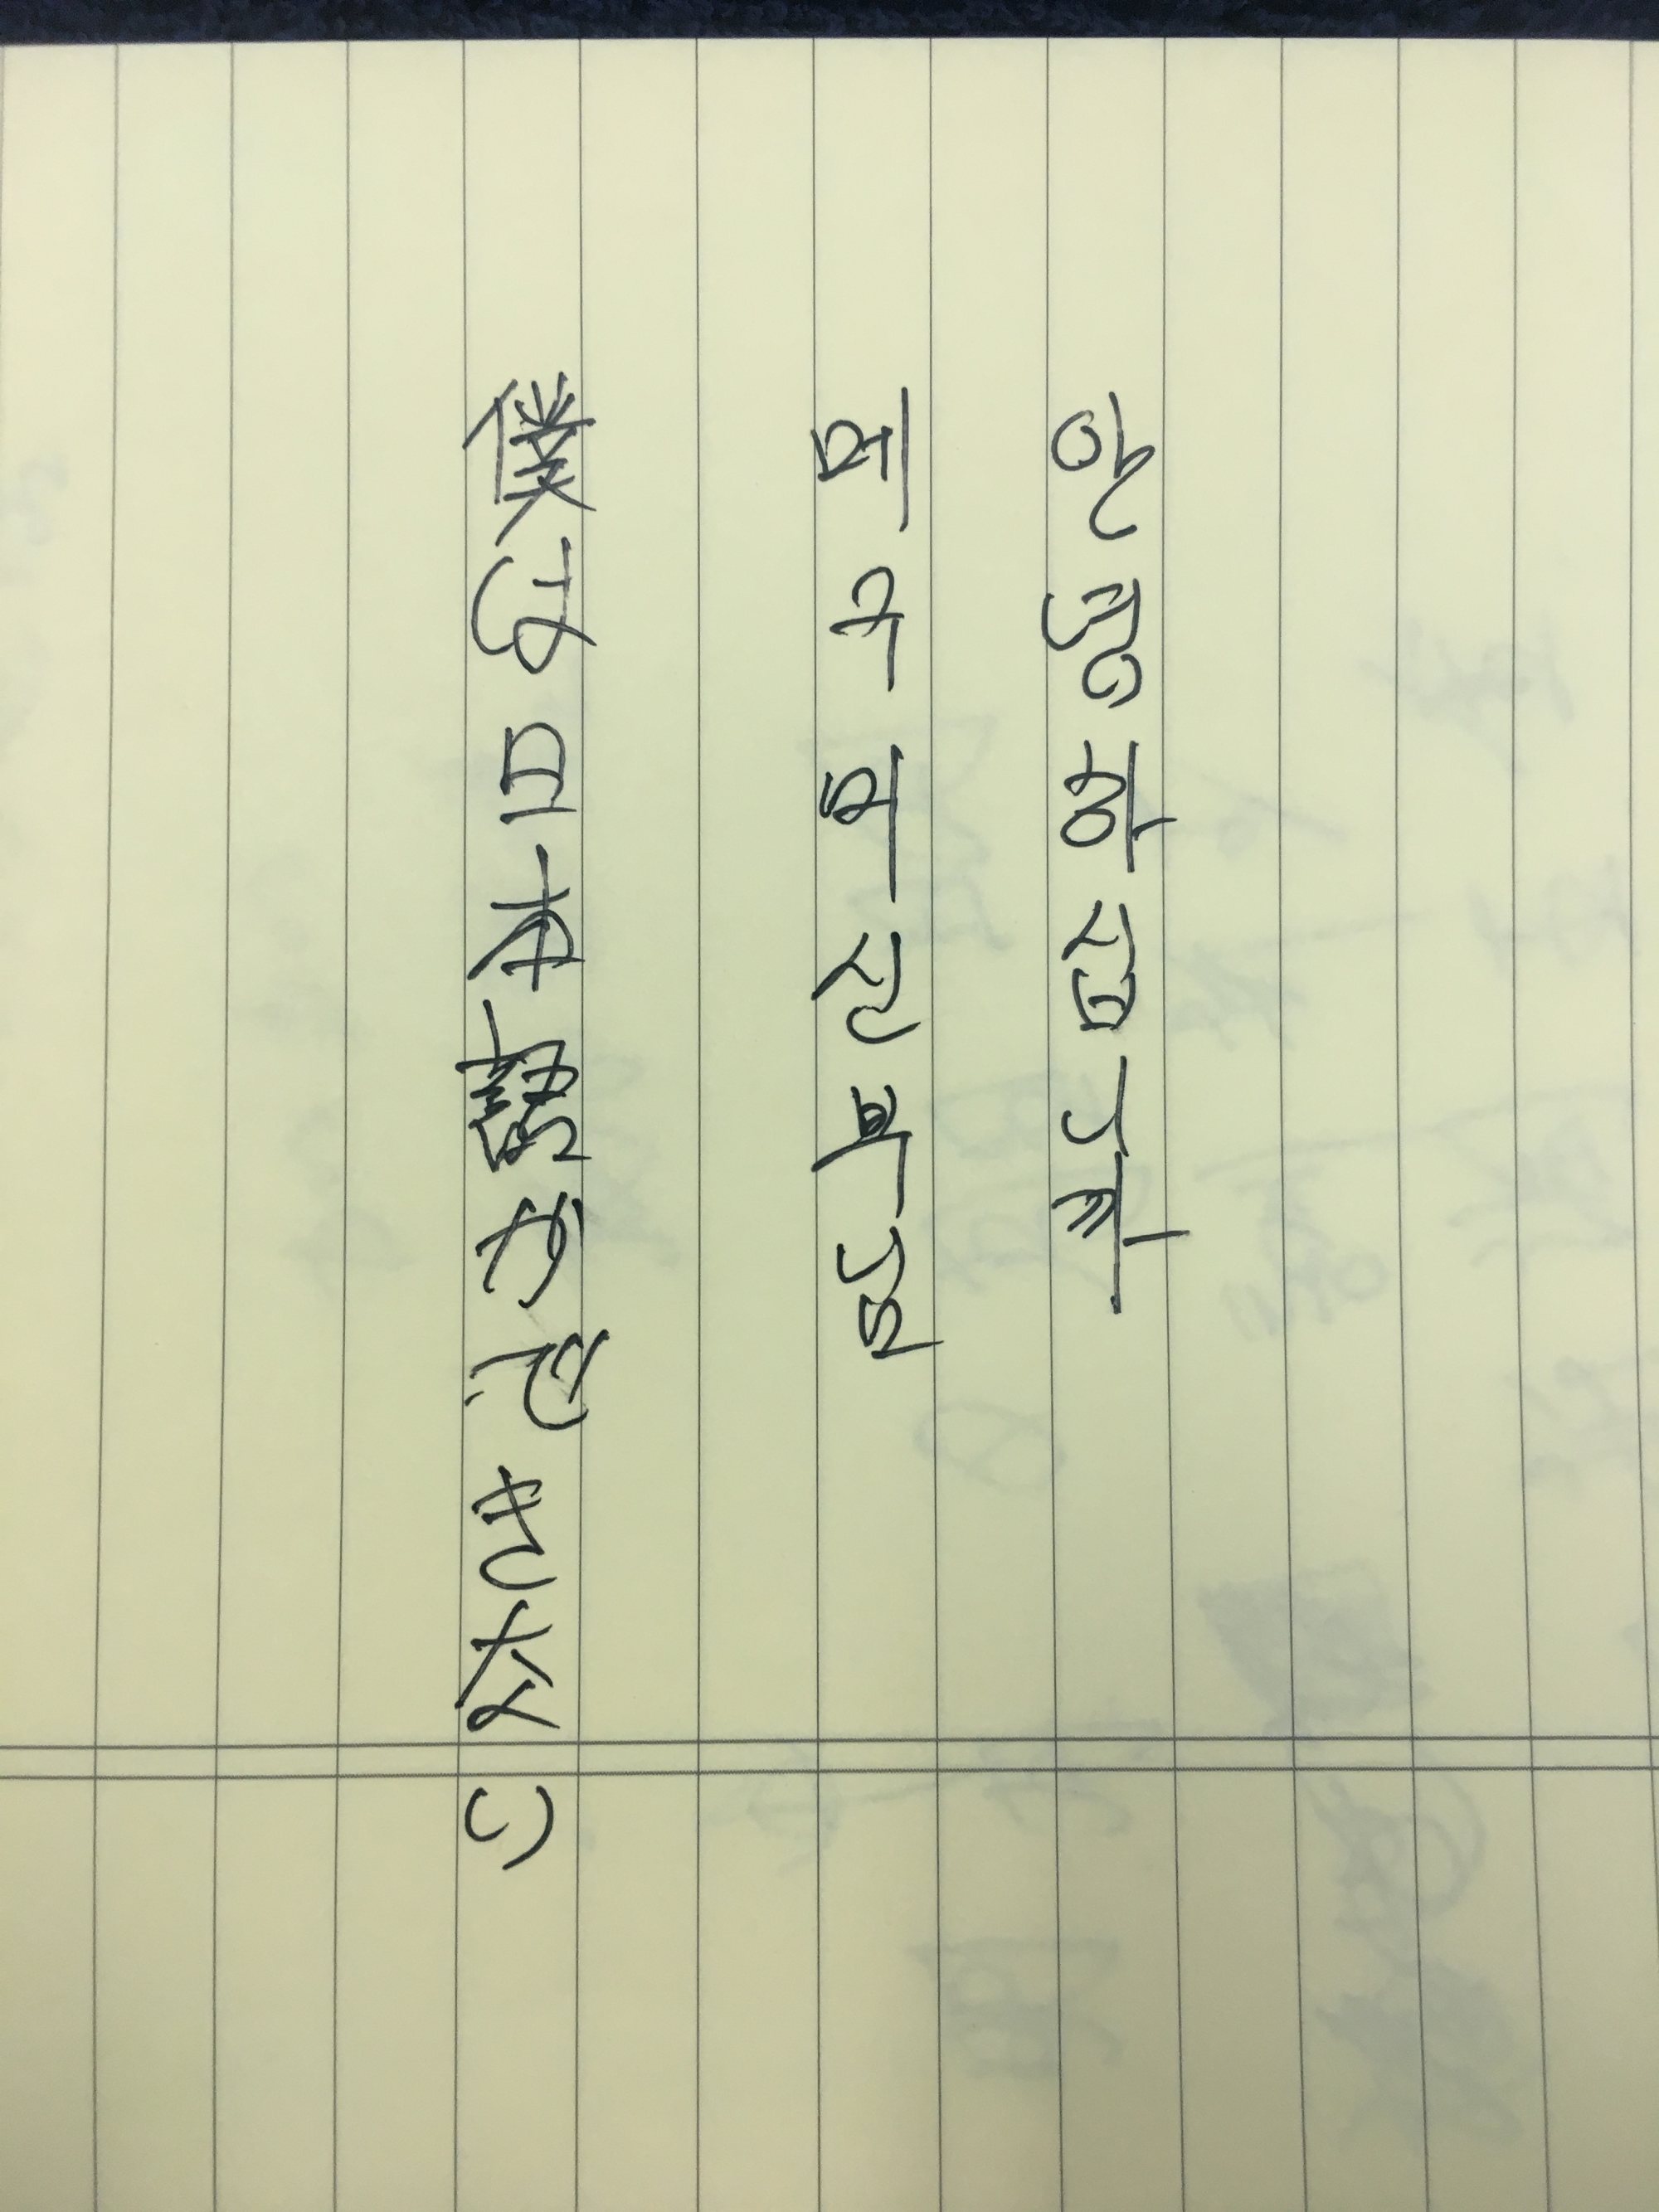 안녕하십니까
메구미신부님
僕は日本語ができない